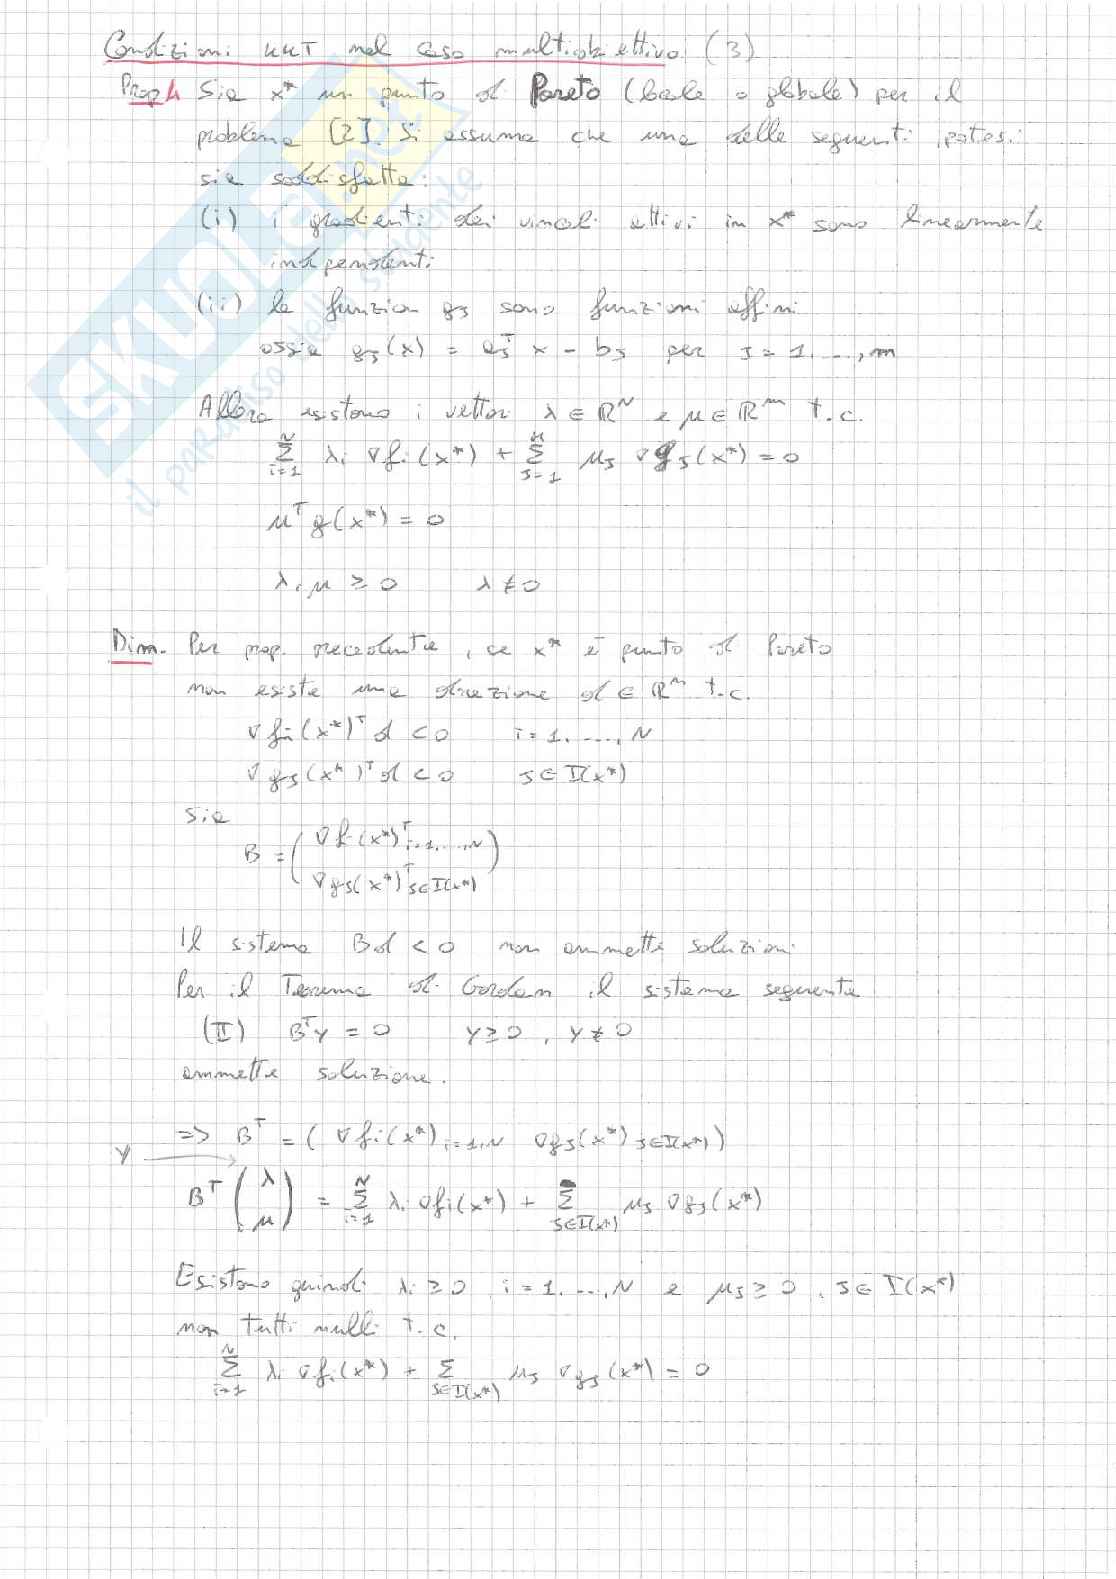 Condizioni KKT nel caso multiobiettivo (3)
Prop 4 Sia x* un punto di Pareto (locale o globale) per il
problema [2]. Si assuma che una delle seguenti ipotesi
sia soddisfatta:
(i) i gradienti dei vincoli attivi in x* sono linearmente
indipendenti
(ii) le funzioni gj sono funzioni affini
ossia gj(x) = ajᵀ x - bj per j = 1, ..., m
Allora esistono i vettori λ ∈ ℝᴺ e μ ∈ ℝᵐ t.c.
∑ᵢ₌₁ᴺ λi ∇fi(x*) + ∑ⱼ₌₁ᴹ μj ∇gj(x*) = 0
μᵀ g(x*) = 0
λ, μ ≥ 0 λ ≠ 0
Dim. Per prop. precedente, se x* è punto di Pareto
non esiste una direzione d ∈ ℝⁿ t.c.
∇fi(x*)ᵀ d < 0 i = 1, ..., N
∇gj(x*)ᵀ d < 0 j ∈ I(x*)
Sia
B = ( ∇fi(x*)ᵀ i=1, ..., N
∇gj(x*)ᵀ j∈I(x*) )
Il sistema Bd < 0 non ammette soluzioni
Per il Teorema di Gordan il sistema seguente
(II) Bᵀy = 0 y ≥ 0, y ≠ 0
ammette soluzione.
=> Bᵀ = ( ∇fi(x*) i=1,N ∇gj(x*) j∈I(x*) )
y
Bᵀ (λ μ) = ∑ᵢ₌₁ᴺ λi ∇fi(x*) + ∑ j∈I(x*) μj ∇gj(x*)
Esistono quindi λi ≥ 0 i = 1, ..., N e μj ≥ 0, j ∈ I(x*)
non tutti nulli t.c.
∑ᵢ₌₁ᴺ λi ∇fi(x*) + ∑ j∈I(x*) μj ∇gj(x*) = 0
SKUOLA.net
il paradiso dello studente